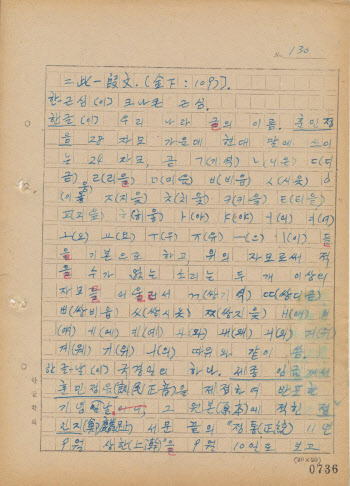 No. 130
二此一段文. (金下 : 109)].
한근심(이) 크나큰 근심.
한글(이) 우리 나라 글의 이름. 훈민정
음 28 자모 가운데 현대 말에 쓰이
는 24 자모, 곧 ㄱ(기역) ㄴ(니은) ㄷ(디
귿) ㄹ(리을) ㅁ(미음) ㅂ(비읍) ㅅ(시옷) ㅇ
(이응) ㅈ(지읒) ㅊ(치읓) ㅋ(키읔) ㅌ(티읕)
ㅍ(피읖) ㅎ(히읗) ㅏ(아) ㅑ(야) ㅓ(어) ㅕ(여)
ㅗ(오) ㅛ(요) ㅜ(우) ㅠ(유) ㅡ(으) ㅣ(이) 들
을 기본으로 하고, 위의 자모로써 적
을 수가 없는 소리는 두 개 이상의
자모를 어울러서 ㄲ(쌍기역) ㄸ(쌍디귿)
ㅃ(쌍비읍) ㅆ(쌍시옷) ㅉ(쌍지읒) ㅐ(애)
(얘) ㅔ(에) ㅖ(예) ㅘ(와) ㅙ(왜) ㅚ(외) ㅝ(워)
ㅞ(웨) ㅟ(위) ㅢ(의) 따위와 같이 씀.
한글날(이) 국경일의 하나. 세종 임금께서
훈민정음(訓民正音)을 제정하여 반포한
기념 그 원본(原本)에 적힌
서문 끝의 "정통(正統) 11년
9월 상한(上澣)"을 9월 10일로 보고
한글학회
(20×20)
0736